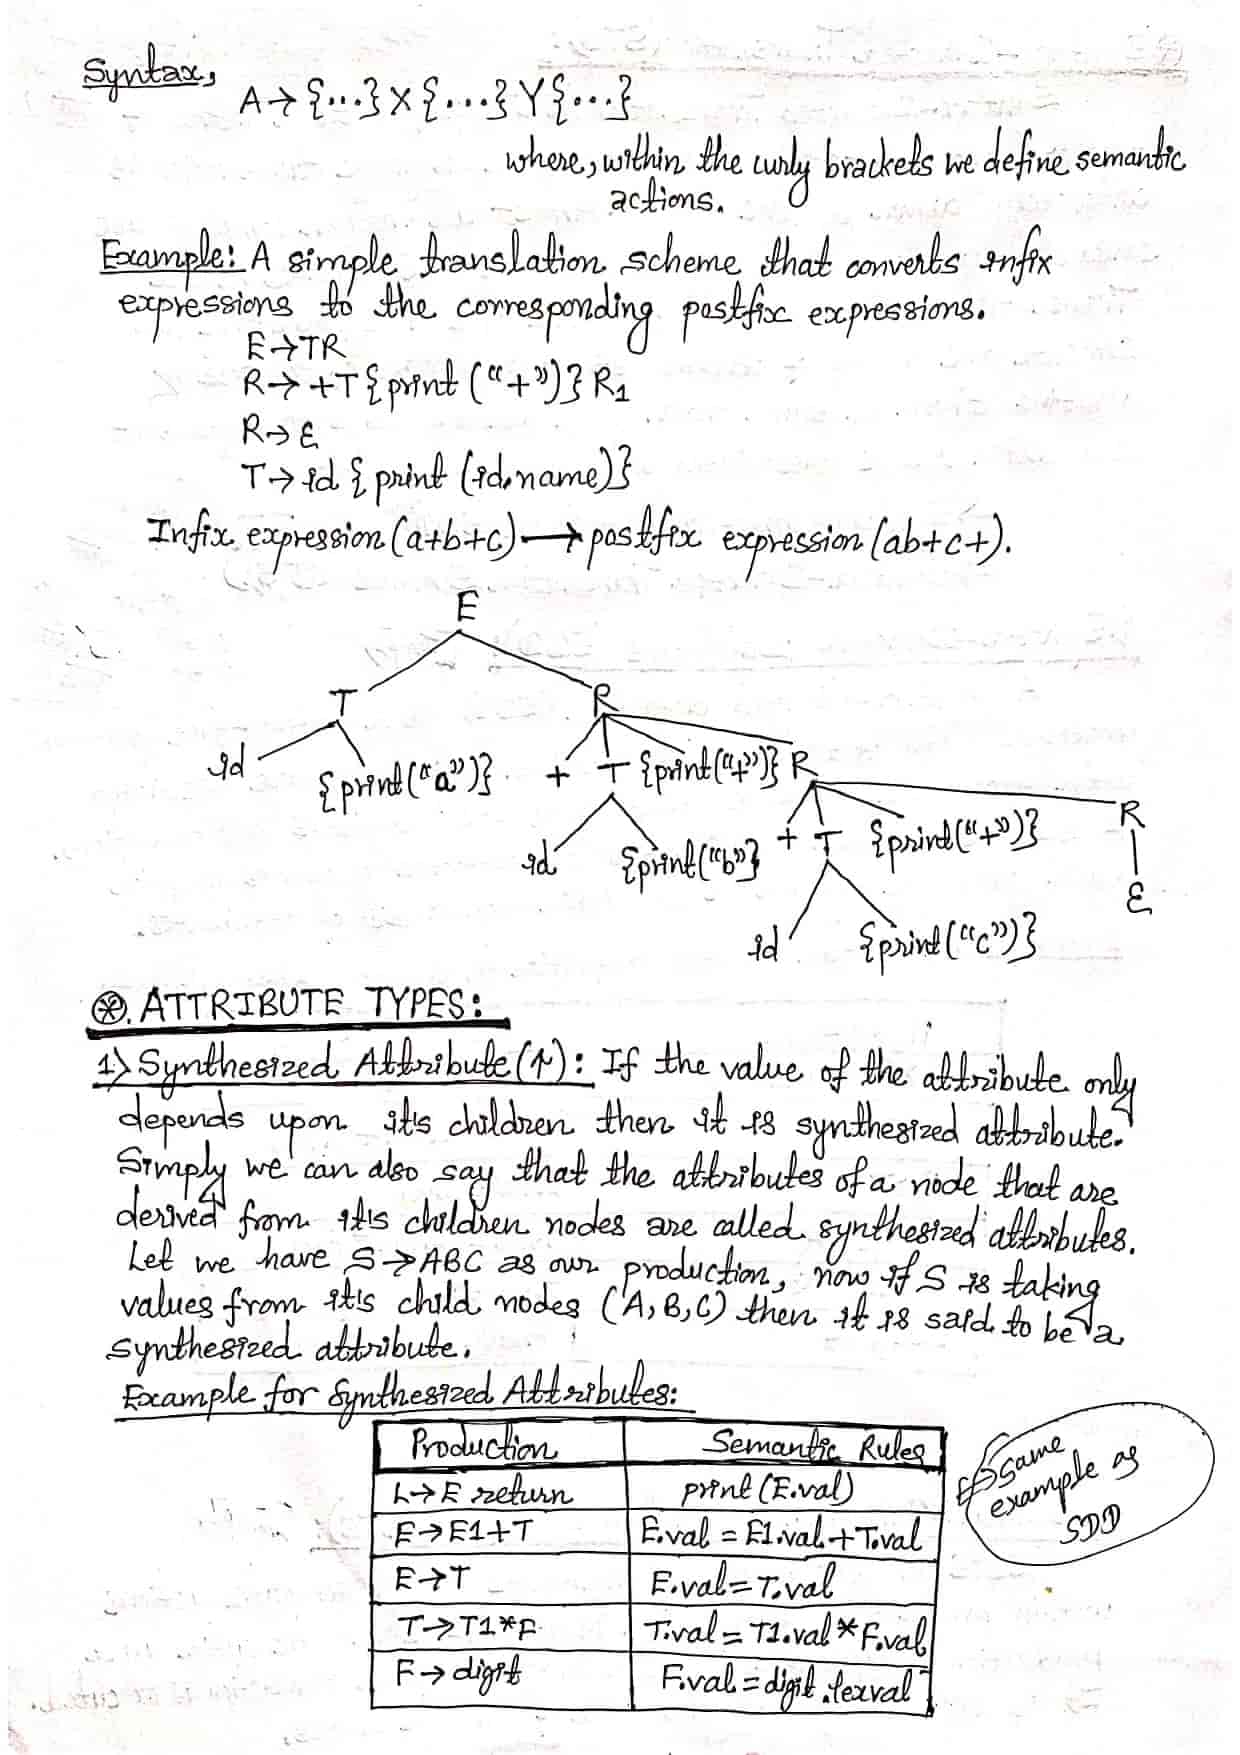 Syntax,
A→{...}X{...}Y{...}
where, within the curly brackets we define semantic
actions.
Example: A simple translation scheme that converts infix
expressions to the corresponding postfix expressions.
E→TR
R→ +T{print (“+”)}R1
R→ε
T→ id { print (id.name)}
Infix expression(a+b+c)⟶postfix expression(ab+c+).
E
T R
id {print(“a”)} + T {print(“+”)} R
id {print(“b”)} + T {print(“+”)} R
id {print(“c”)} ε
⊛. ATTRIBUTE TYPES:
1) Synthesized Attribute(↑): If the value of the attribute only
depends upon it's children then it is synthesized attribute.
Simply we can also say that the attributes of a node that are
derived from it's children nodes are called synthesized attributes.
Let we have S→ABC as our production, now if S is taking
values from it's child nodes (A,B,C) then it is said to be a
synthesized attribute.
Example for Synthesized Attributes:
Production Semantic Rules
L→E return print(E.val)
E→E1+T E.val = E1.val+T.val
E→T E.val=T.val
T→T1*F T.val=T1.val*F.val
F→digit F.val=digit.lexval
Same
example as
SDD